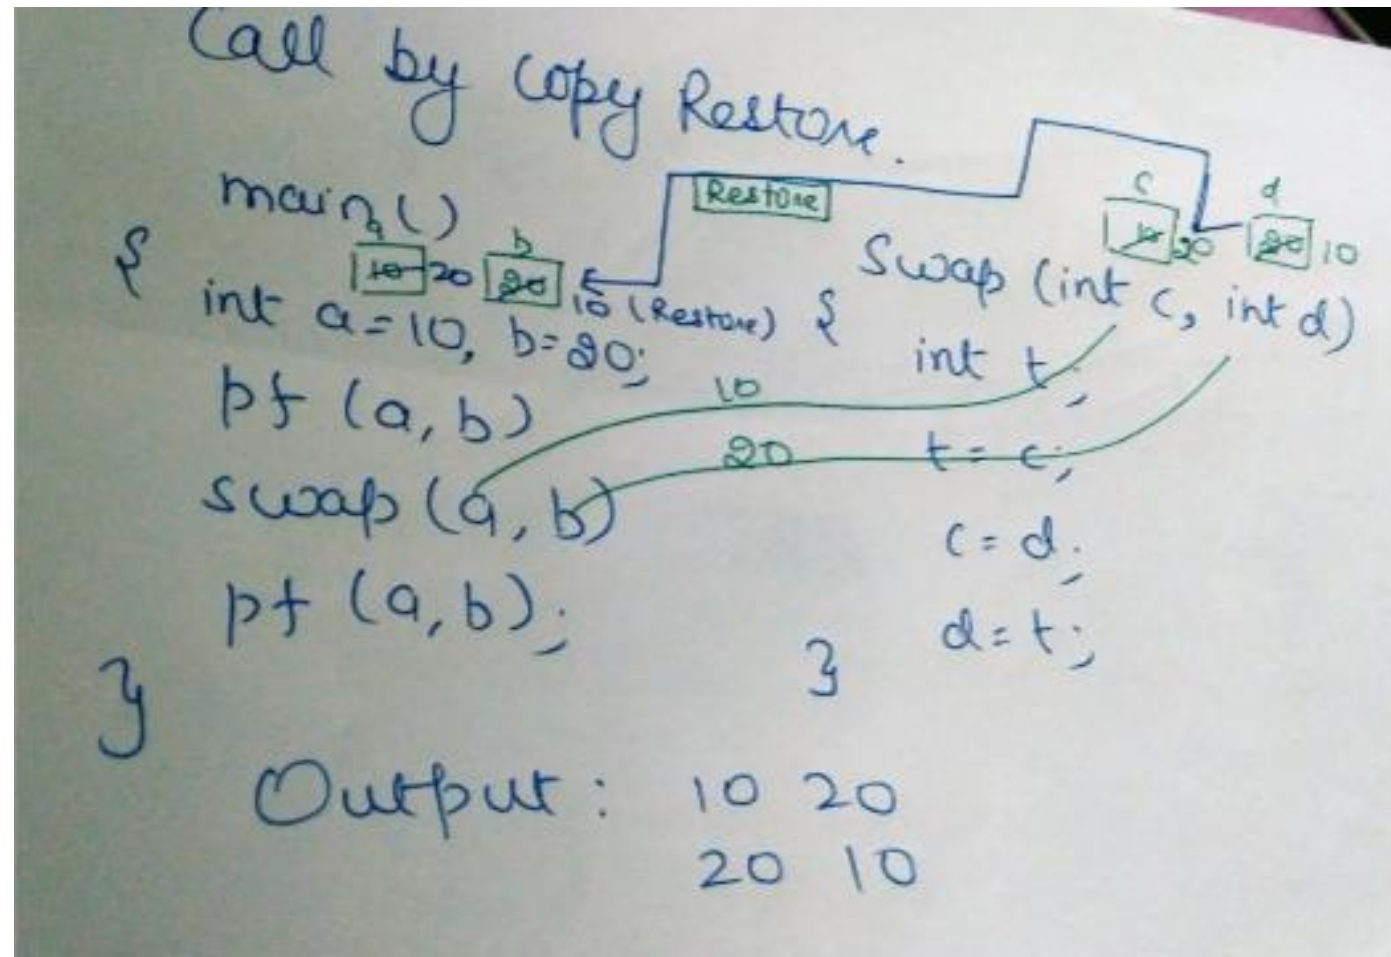 Call by Copy Restore.
Restore
main()
a b
10 20 20 10 (Restore)
{
int a=10, b=20;
pf (a, b)
swap (a, b)
pf (a, b);
}
c d
10 20 20 10
Swap (int c, int d)
{
int t;
10
20
t = c;
c = d;
d = t;
}
Output: 10 20
20 10